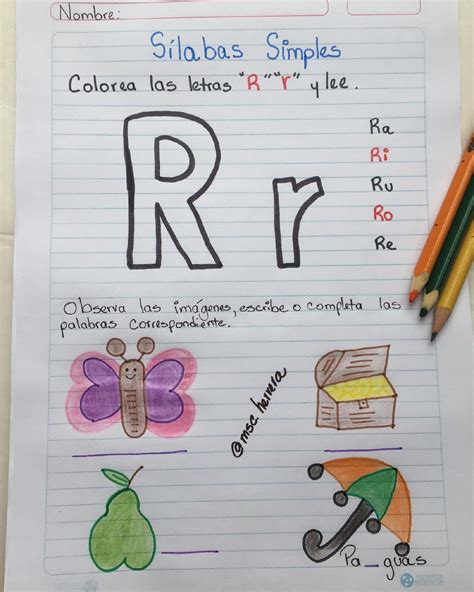 Nombre:
Sílabas Simples
Colorea las letras "R" "r" y lee.
R r
Ra
Ri
Ru
Ro
Re
Observa las imágenes, escribe o completa las
palabras correspondiente.
@msc herrera
Pa_guas